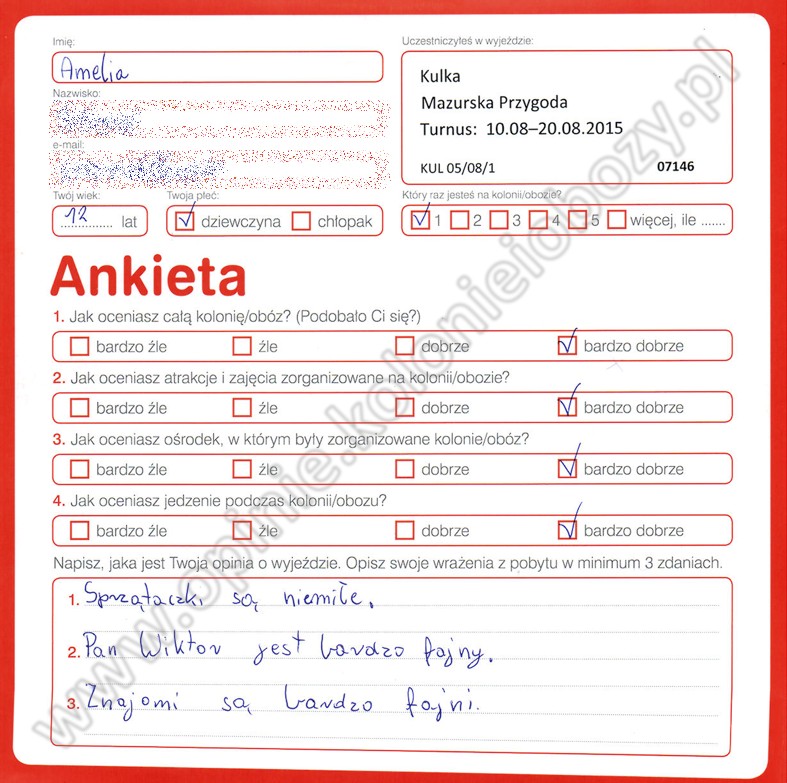 Imię:
Amelia
Uczestniczyłeś w wyjeździe:
Kulka
Mazurska Przygoda
Turnus: 10.08–20.08.2015
KUL 05/08/1 07146
Nazwisko:
e-mail:
Twój wiek:
12 lat
Twoja płeć:
dziewczyna chłopak
Który raz jesteś na kolonii/obozie?
1 2 3 4 5 więcej, ile .......
Ankieta
1. Jak oceniasz całą kolonię/obóz? (Podobało Ci się?)
bardzo źle źle dobrze bardzo dobrze
2. Jak oceniasz atrakcje i zajęcia zorganizowane na kolonii/obozie?
bardzo źle źle dobrze bardzo dobrze
3. Jak oceniasz ośrodek, w którym były zorganizowane kolonie/obóz?
bardzo źle źle dobrze bardzo dobrze
4. Jak oceniasz jedzenie podczas kolonii/obozu?
bardzo źle źle dobrze bardzo dobrze
Napisz, jaka jest Twoja opinia o wyjeździe. Opisz swoje wrażenia z pobytu w minimum 3 zdaniach.
1. Sprzątaczki są niemiłe.
2. Pan Wiktor jest bardzo fajny.
3. Znajomi są bardzo fajni.
www.opinie.kolonieiobozy.pl